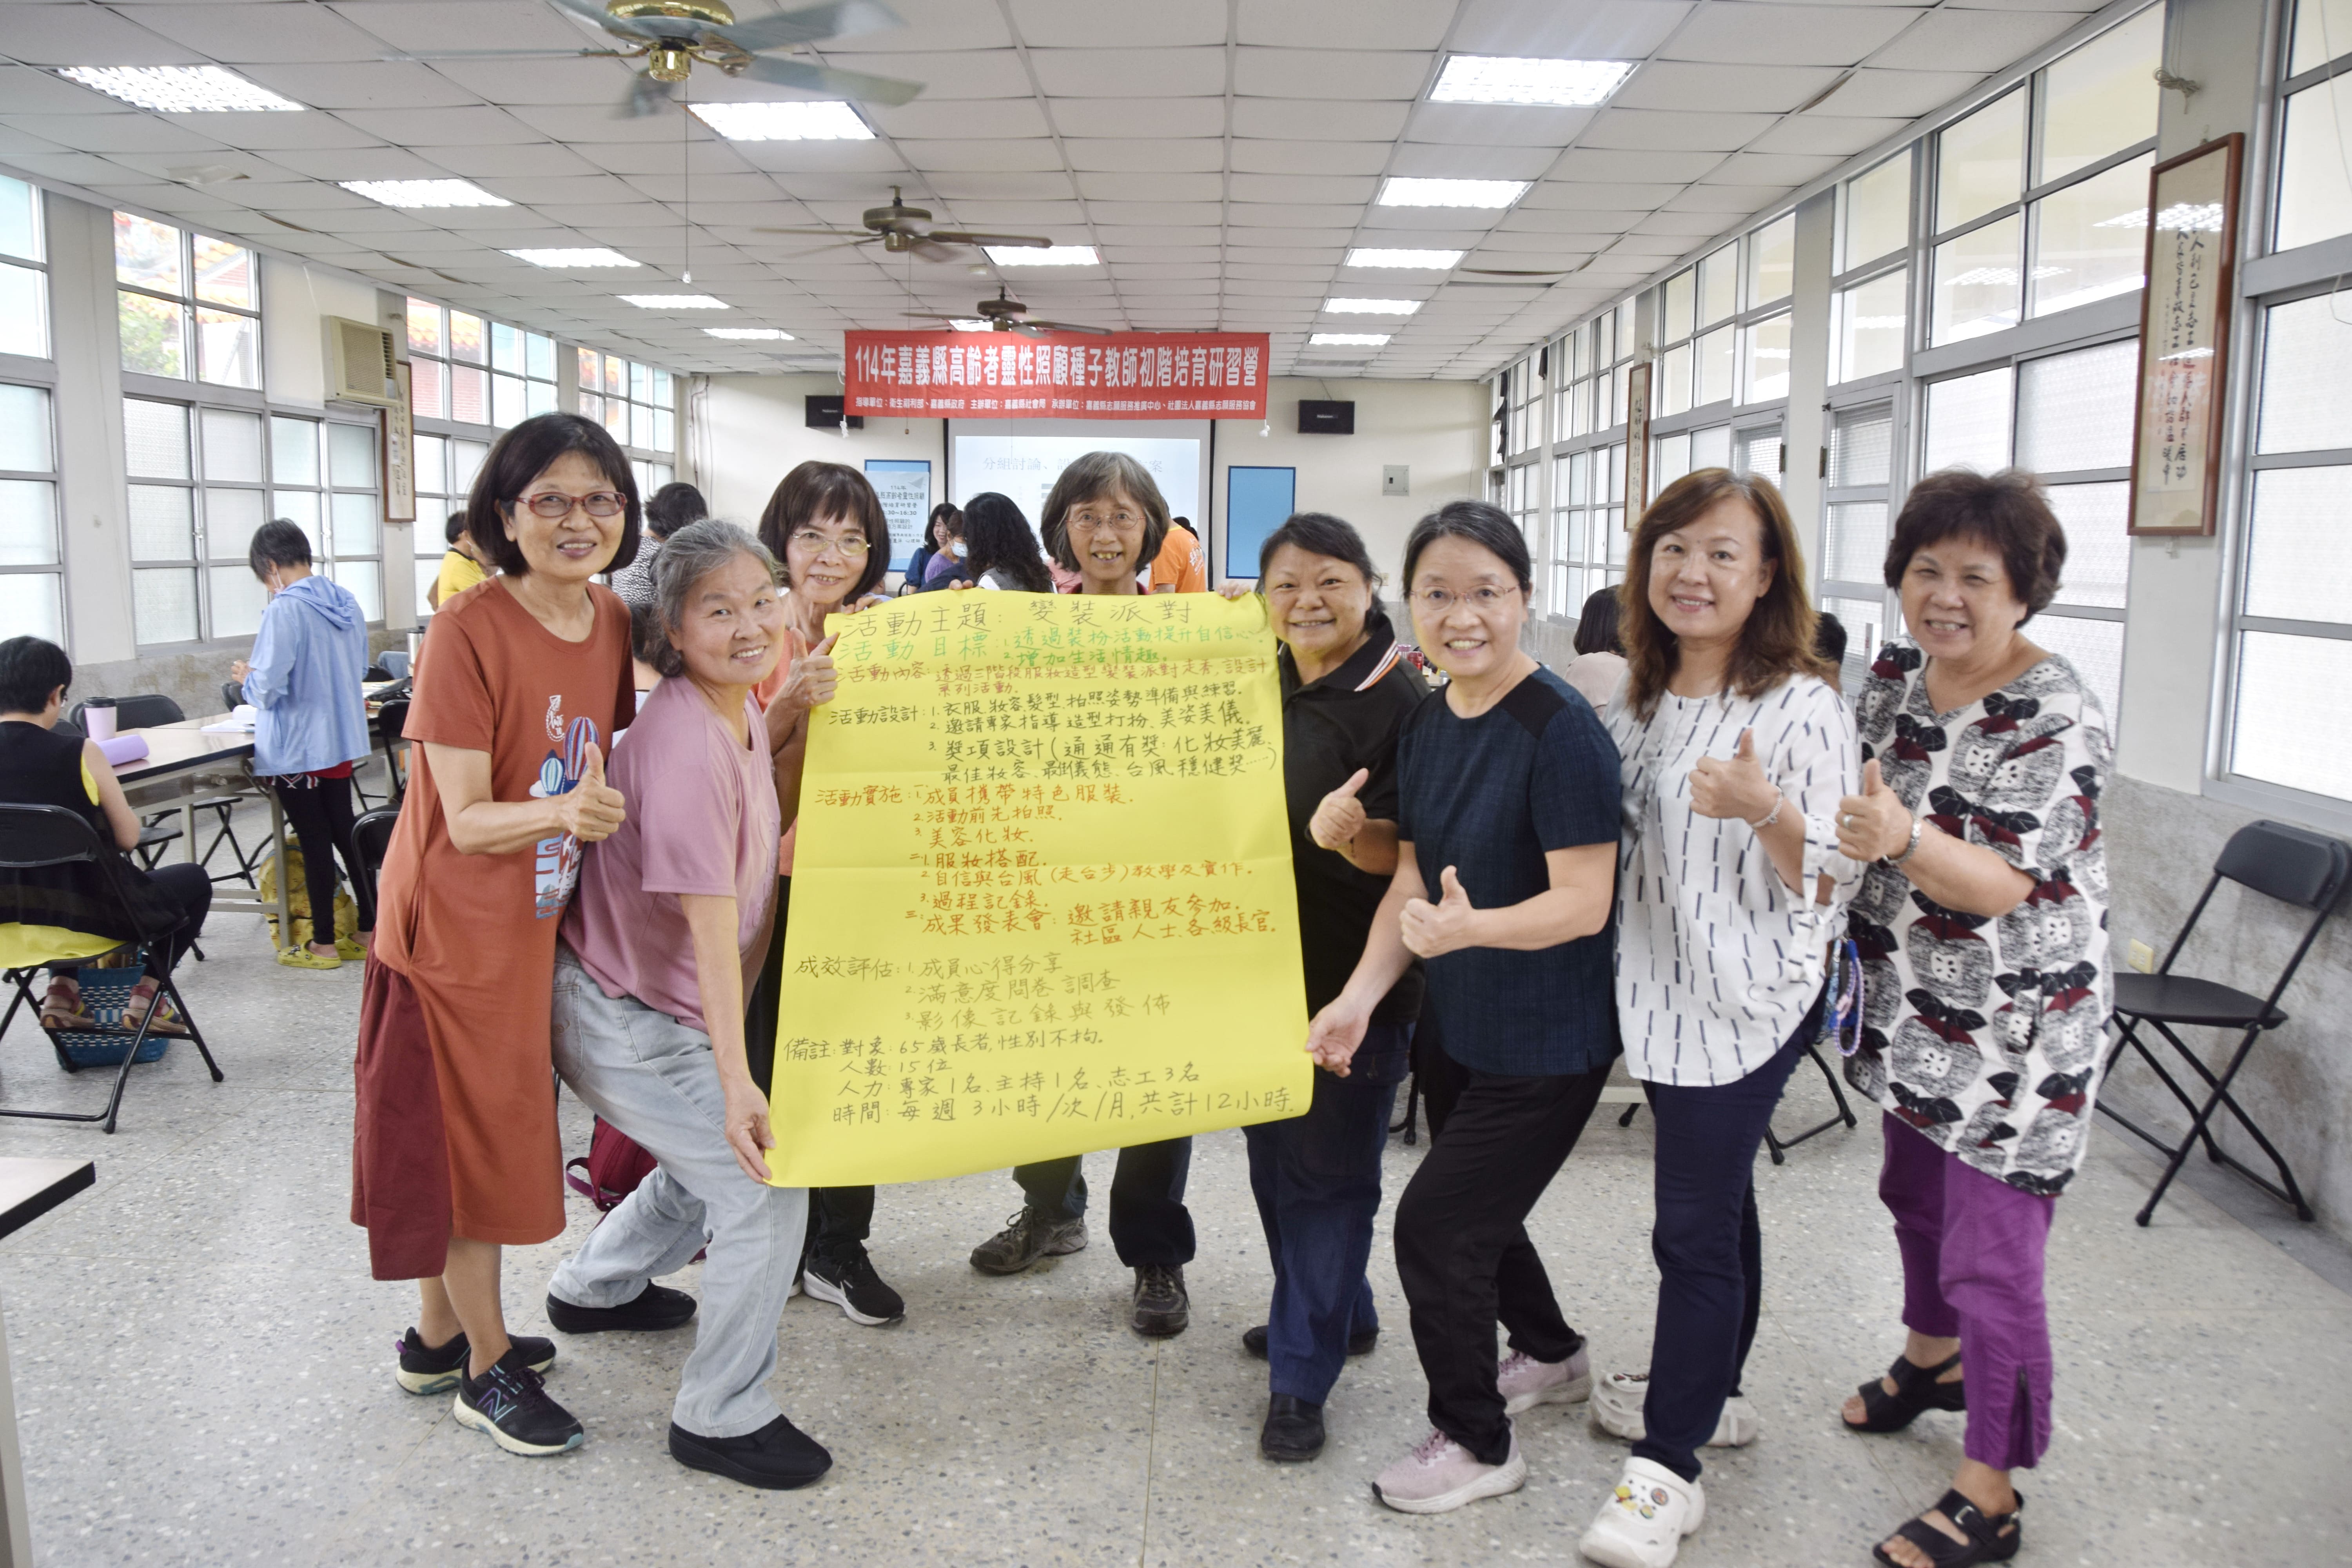 114年嘉義縣高齡者靈性照顧種子教師初階培育研習營
指導單位：衛生福利部、嘉義縣政府 主辦單位：嘉義縣社會局 承辦單位：嘉義縣志願服務推廣中心、社團法人嘉義縣志願服務協會
分組討論、設 案
活動主題：變裝派對
活動目標：1.透過裝扮活動提升自信心.
2.增加生活情趣。
活動內容：透過三階段服妝造型變裝派對走秀，設計
系列活動.
活動設計：1.衣服、妝容、髮型、拍照姿勢準備與練習.
2.邀請專家指導造型打扮、美姿美儀.
3.獎項設計(通通有獎：化妝美麗、
最佳妝容、最佳儀態、台風穩健獎……)
活動實施：一.1.成員攜帶特色服裝.
2.活動前先拍照.
3.美容化妝.
二.1.服妝搭配.
2.自信與台風(走台步)教學及實作.
3.過程記錄.
三.成果發表會：邀請親友參加.
社區人士、各級長官.
成效評估：1.成員心得分享
2.滿意度問卷調查
3.影像記錄與發佈
備註：對象：65歲長者，性別不拘。
人數：15位
人力：專家1名、主持1名、志工3名
時間：每週3小時/次/月，共計12小時.